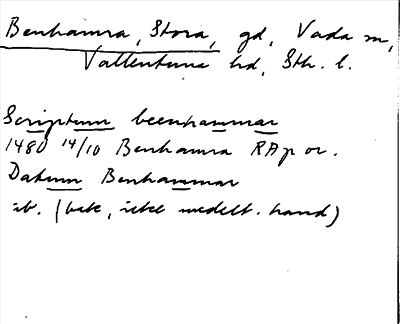 Benhamra, Stora, gd, Vada sn,
Vallentuna hd, Sth. l.
Scriptum beenhammar
1480 14/10 Benhamra RAp or.
Datum Benhammar
ib. (bak, icke medelt. hand)